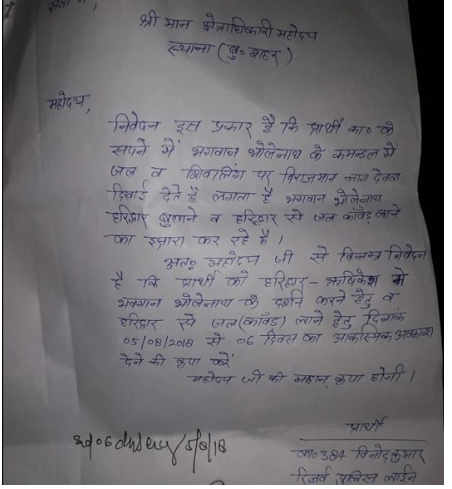 सेवा में,
श्री मान क्षेत्राधिकारी महोदय
स्याना (बु० शहर)
महोदय,
निवेदन इस प्रकार है कि प्रार्थी का० के
सपने में भगवान भोलेनाथ के कमन्डल में
जल व शिवालिंग पर विराजमान नाग देवता
दिखाई देते है लगता है भगवान भोलेनाथ
हरिद्वार बुलाने व हरिद्वार से जल काँवड़ लाने
का इशारा कर रहे है।
अतः महोदय जी से विनम्र निवेदन
है कि प्रार्थी को हरिद्वार-ऋषिकेश मे
भगवान भोलेनाथ के दर्शन करने हेतु व
हरिद्वार से जल (काँवड) लाने हेतु दिनांक
05/08/2018 से 06 दिवस का आकस्मिक अवकाश
देने की कृपा करें
महोदय जी की महान कृपा होगी।
प्रार्थी
का० 384 विनोद कुमार
रिजर्व पुलिस लाईन
06 5/8/18